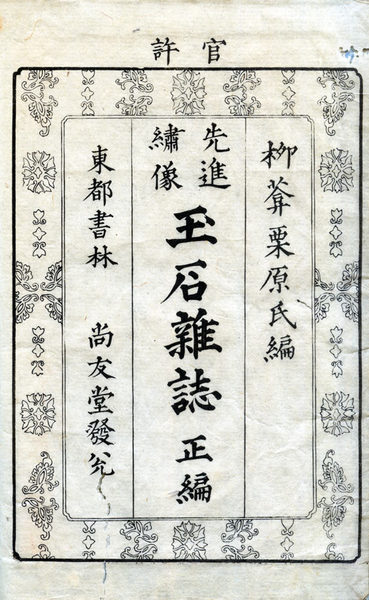 官許
柳菴栗原氏編
先進
繡像
玉石雜誌 正編
東都書林 尚友堂發兌